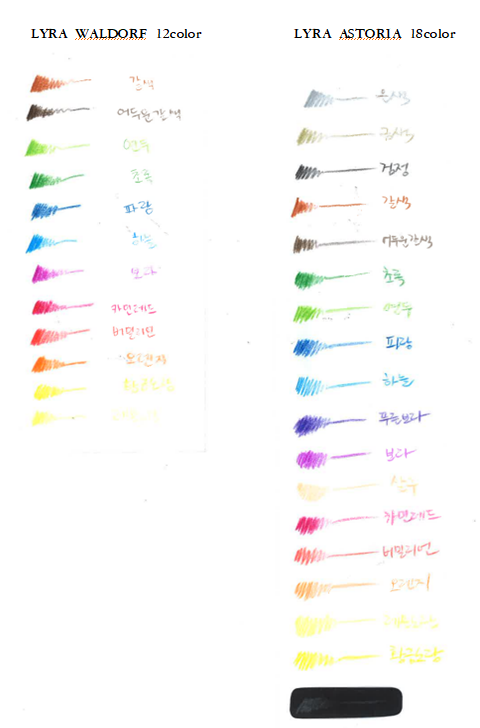 LYRA WALDORF 12color
갈색
어두운갈색
연두
초록
파랑
하늘
보라
카민레드
버밀리언
오렌지
황금노랑
LYRA ASTORIA 18color
은색
금색
검정
갈색
어두운갈색
초록
연두
파랑
하늘
푸른보라
보라
살구
카민레드
버밀리언
오렌지
황금노랑